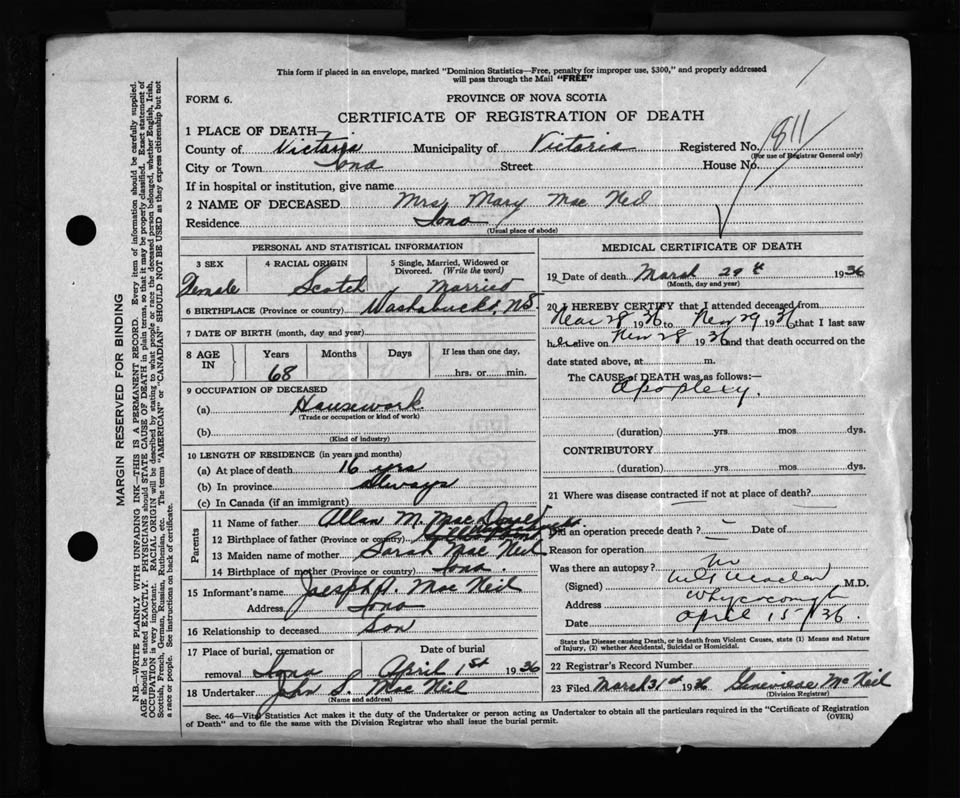 This form if placed in an envelope, marked "Dominion Statistics—Free, penalty for improper use, $300," and properly addressed
will pass through the Mail "FREE"
FORM 6.
PROVINCE OF NOVA SCOTIA
CERTIFICATE OF REGISTRATION OF DEATH
1 PLACE OF DEATH—
County of Victoria Municipality of Victoria Registered No. 811
(For use of Registrar General only)
City or Town Iona Street House No.
If in hospital or institution, give name
2 NAME OF DECEASED Mrs Mary Mac Neil
Residence Iona
(Usual place of abode)
PERSONAL AND STATISTICAL INFORMATION
3 SEX 4 RACIAL ORIGIN 5 Single, Married, Widowed or Divorced. (Write the word)
Female Scotch Married
6 BIRTHPLACE (Province or country) Washabuckt, N.S.
7 DATE OF BIRTH (month, day, and year)
8 AGE IN Years Months Days If less than one day,
68 hrs. or min.
9 OCCUPATION OF DECEASED
(a) Housework
(Trade or occupation or kind of work)
(b)
(Kind of industry)
10 LENGTH OF RESIDENCE (in years and months)
(a) At place of death 16 yrs
(b) In province Always
(c) In Canada (if an immigrant)
Parents
11 Name of father Allan M. Mac
12 Birthplace of father (Province or country)
13 Maiden name of mother Sarah Mac Neil
14 Birthplace of mother (Province or country) Iona
15 Informant's name Joesph A. Mac Neil
Address Iona
16 Relationship to deceased Son
17 Place of burial, cremation or removal Iona Date of burial April 1st 1936
18 Undertaker John S. Mac Neil
(Name and address)
MEDICAL CERTIFICATE OF DEATH
19 Date of death March 29th 1936
(Month, day and year)
20 I HEREBY CERTIFY that I attended deceased from
28 1936 to 29 1936 that I last saw
her alive on 28 1936 and that death occurred on the
date stated above, at m.
The CAUSE of DEATH was as follows:—
Apoplexy.
(duration) yrs mos dys.
CONTRIBUTORY
(duration) yrs. mos. dys.
21 Where was disease contracted if not at place of death?
Did an operation precede death? Date of
Reason for operation
Was there an autopsy? No
(Signed) M.D.
Address Whycocomagh
Date April 15/36
State the Disease causing Death, or in death from Violent Causes, state (1) Means and Nature
of Injury, (2) whether Accidental, Suicidal or Homicidal.
22 Registrar's Record Number
23 Filed March 31st 1936 Genevieve McNeil
(Division Registrar)
Sec. 46—Vital Statistics Act makes it the duty of the Undertaker or person acting as Undertaker to obtain all the particulars required in the "Certificate of Registration
of Death" and to file the same with the Division Registrar who shall issue the burial permit.
(OVER)
MARGIN RESERVED FOR BINDING
N.B.—WRITE PLAINLY WITH UNFADING INK—THIS IS A PERMANENT RECORD. Every item of information should be carefully supplied.
AGE should be stated EXACTLY. PHYSICIANS should STATE CAUSE OF DEATH in plain terms, so that it may be properly classified. Exact statement of
OCCUPATION is very important. RACIAL ORIGIN will be described by stating to what people or race the deceased person belonged, whether English, Irish,
Scottish, French, German, Russian, Ruthenian, etc. The terms "AMERICAN" or "CANADIAN" SHOULD NOT BE USED as they express citizenship but not
a race or people. See instructions on back of certificate.